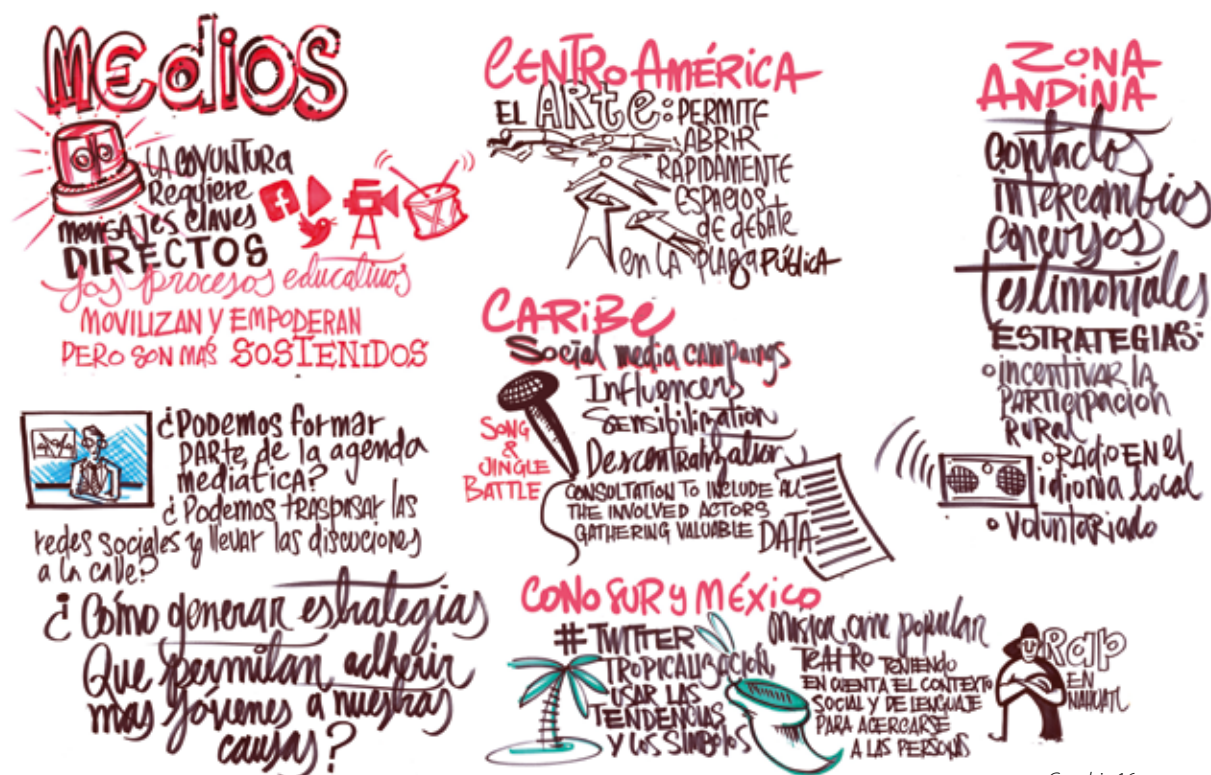 MEdiOS
LA COYUNTURA
Requiere
mensajes claves
DIRECTOS
Los procesos educativos
MOVILIZAN Y EMPODERAN
PERO SON MÁS SOSTENIDOS
¿Podemos formar
PARte de la agenda
mediática?
¿Podemos traspasar las
redes sociales y llevar las discuciones
a la calle?
¿Cómo generar estrategias
Que permitan adherir
mas jóvenes a nuestras
causas?
CENTRO AMÉRICA
EL ARte: PERMITE
ABRIR
RÁPIDAMENTE
ESPACIOS
DE debate
en LA PLAZA PÚBLICA
CARiBe
Social media campaings
Influencers
Sensibilization
Descentralization
SONG
&
JINGLE
BATTLE
CONSULTATION TO INCLUDE ALL
THE INVOLVED ACTORS
GATHERING VALUABLE DATA
CONO SUR y MÉXICO
# TWITTER
TROPICALIZACIÓN
USAR LAS
TENDENCIAS
Y LOS SÍMBOLOS
Música, cine popular
TEATRO TENIENDO
EN CUENTA EL CONTEXTO
SOCIAL Y DE LENGUAJE
PARA ACERCARSE
A LAS PERSONAS
Rap
EN
NAHUATL
ZONA
ANDINA
Contactos
intercambios
Concursos
testimoniales
ESTRATEGIAS:
incentivar la
PARticipación
RURal
RAdio EN el
idioma local
Voluntariado